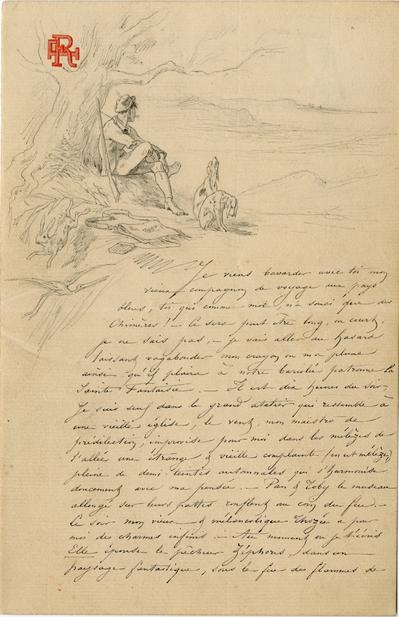 Je viens bavarder avec toi mon
vieux compagnon de voyage aux pays
bleus, toi qui comme moi n'a souci que des
Chimères! — Ce sera peut être long, ou court,
je ne sais pas, — je vais aller au hasard
laissant vagabonder mon crayon ou ma plume
ainsi qu'il plaira à notre patronne la
Sainte Fantaisie. — Il est dix heures du soir.
Je suis seul dans le grand atelier qui ressemble à
une vieille église, le vent, mon maestro de
prédilection, improvise pour moi dans les mélèzes de
l'allée une étrange & vieille complainte
pleine de demi-teintes automnales qui s'harmonise
doucement avec ma pensée. — Pan & Toby le museau
allongé sur leurs pattes ronflent au coin du feu. —
Ce soir mon vieux & mélancolique a pour
moi des charmes infinis. — Au moment où je t'écris
Elle épouse le pêcheur Zéphoris, dans un
paysage fantastique, sous le feu des flammes de